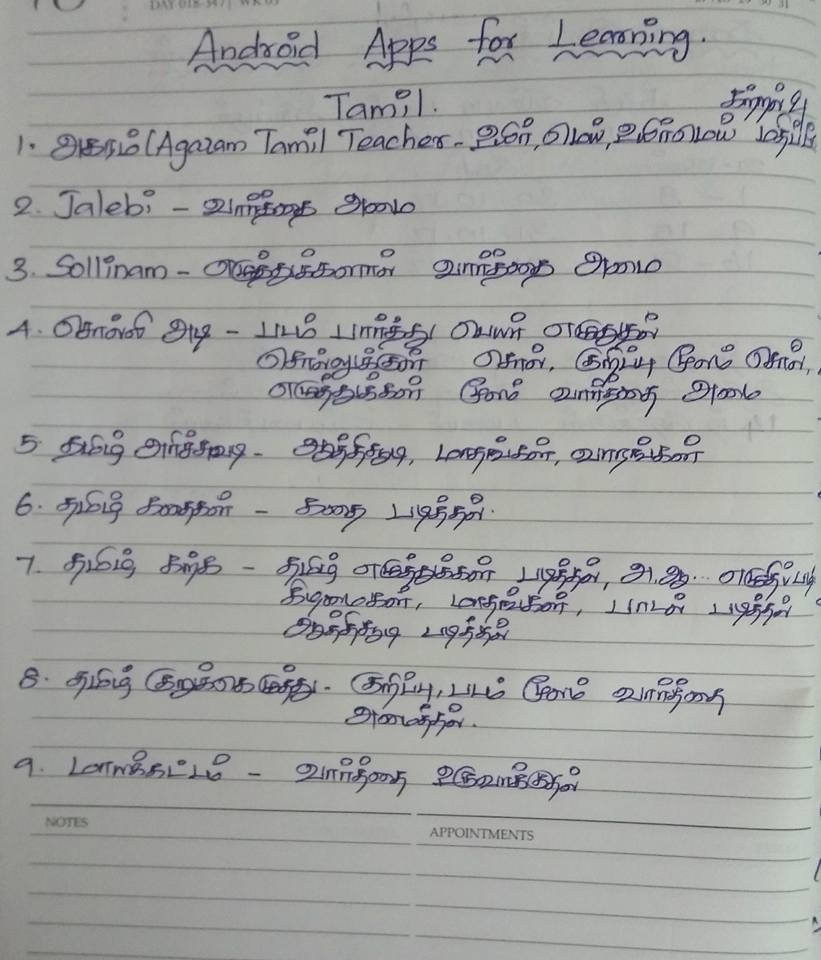 DAY 018-347 WK 03
Android Apps for Learning.
Tamil.
கற்றல் &
1. அகரம் (Agaram Tamil Teacher - உயிர், மெய், உயிர்மெய் மதிப்பீடு
2. Jalebi - வார்த்தை அமை
3. Sollinam - எழுத்துக்களால் வார்த்தை அமை
4. சொல்லி அடி - படம் பார்த்து பெயர் எழுதுதல்
சொல்லுக்குள் சொல், குறிப்பு மூலம் சொல்,
எழுத்துக்கள் மூலம் வார்த்தை அமை
5 தமிழ் அரிச்சுவடி - ஆத்திசூடி, மாதங்கள், வாரங்கள்
6. தமிழ் கதைகள் - கதை படித்தல்.
7. தமிழ் கற்க - தமிழ் எழுத்துக்கள் படித்தல், அ.ஆ... எழுதிப்படி
கிழமைகள், மாதங்கள், பாடல் படித்தல்
ஆத்திசூடி படித்தல்
8. தமிழ் குறுக்கெழுத்து - குறிப்பு, படம் மூலம் வார்த்தை
அமைத்தல்.
9. மாயக்கட்டம் - வார்த்தை உருவாக்குதல்
NOTES
APPOINTMENTS